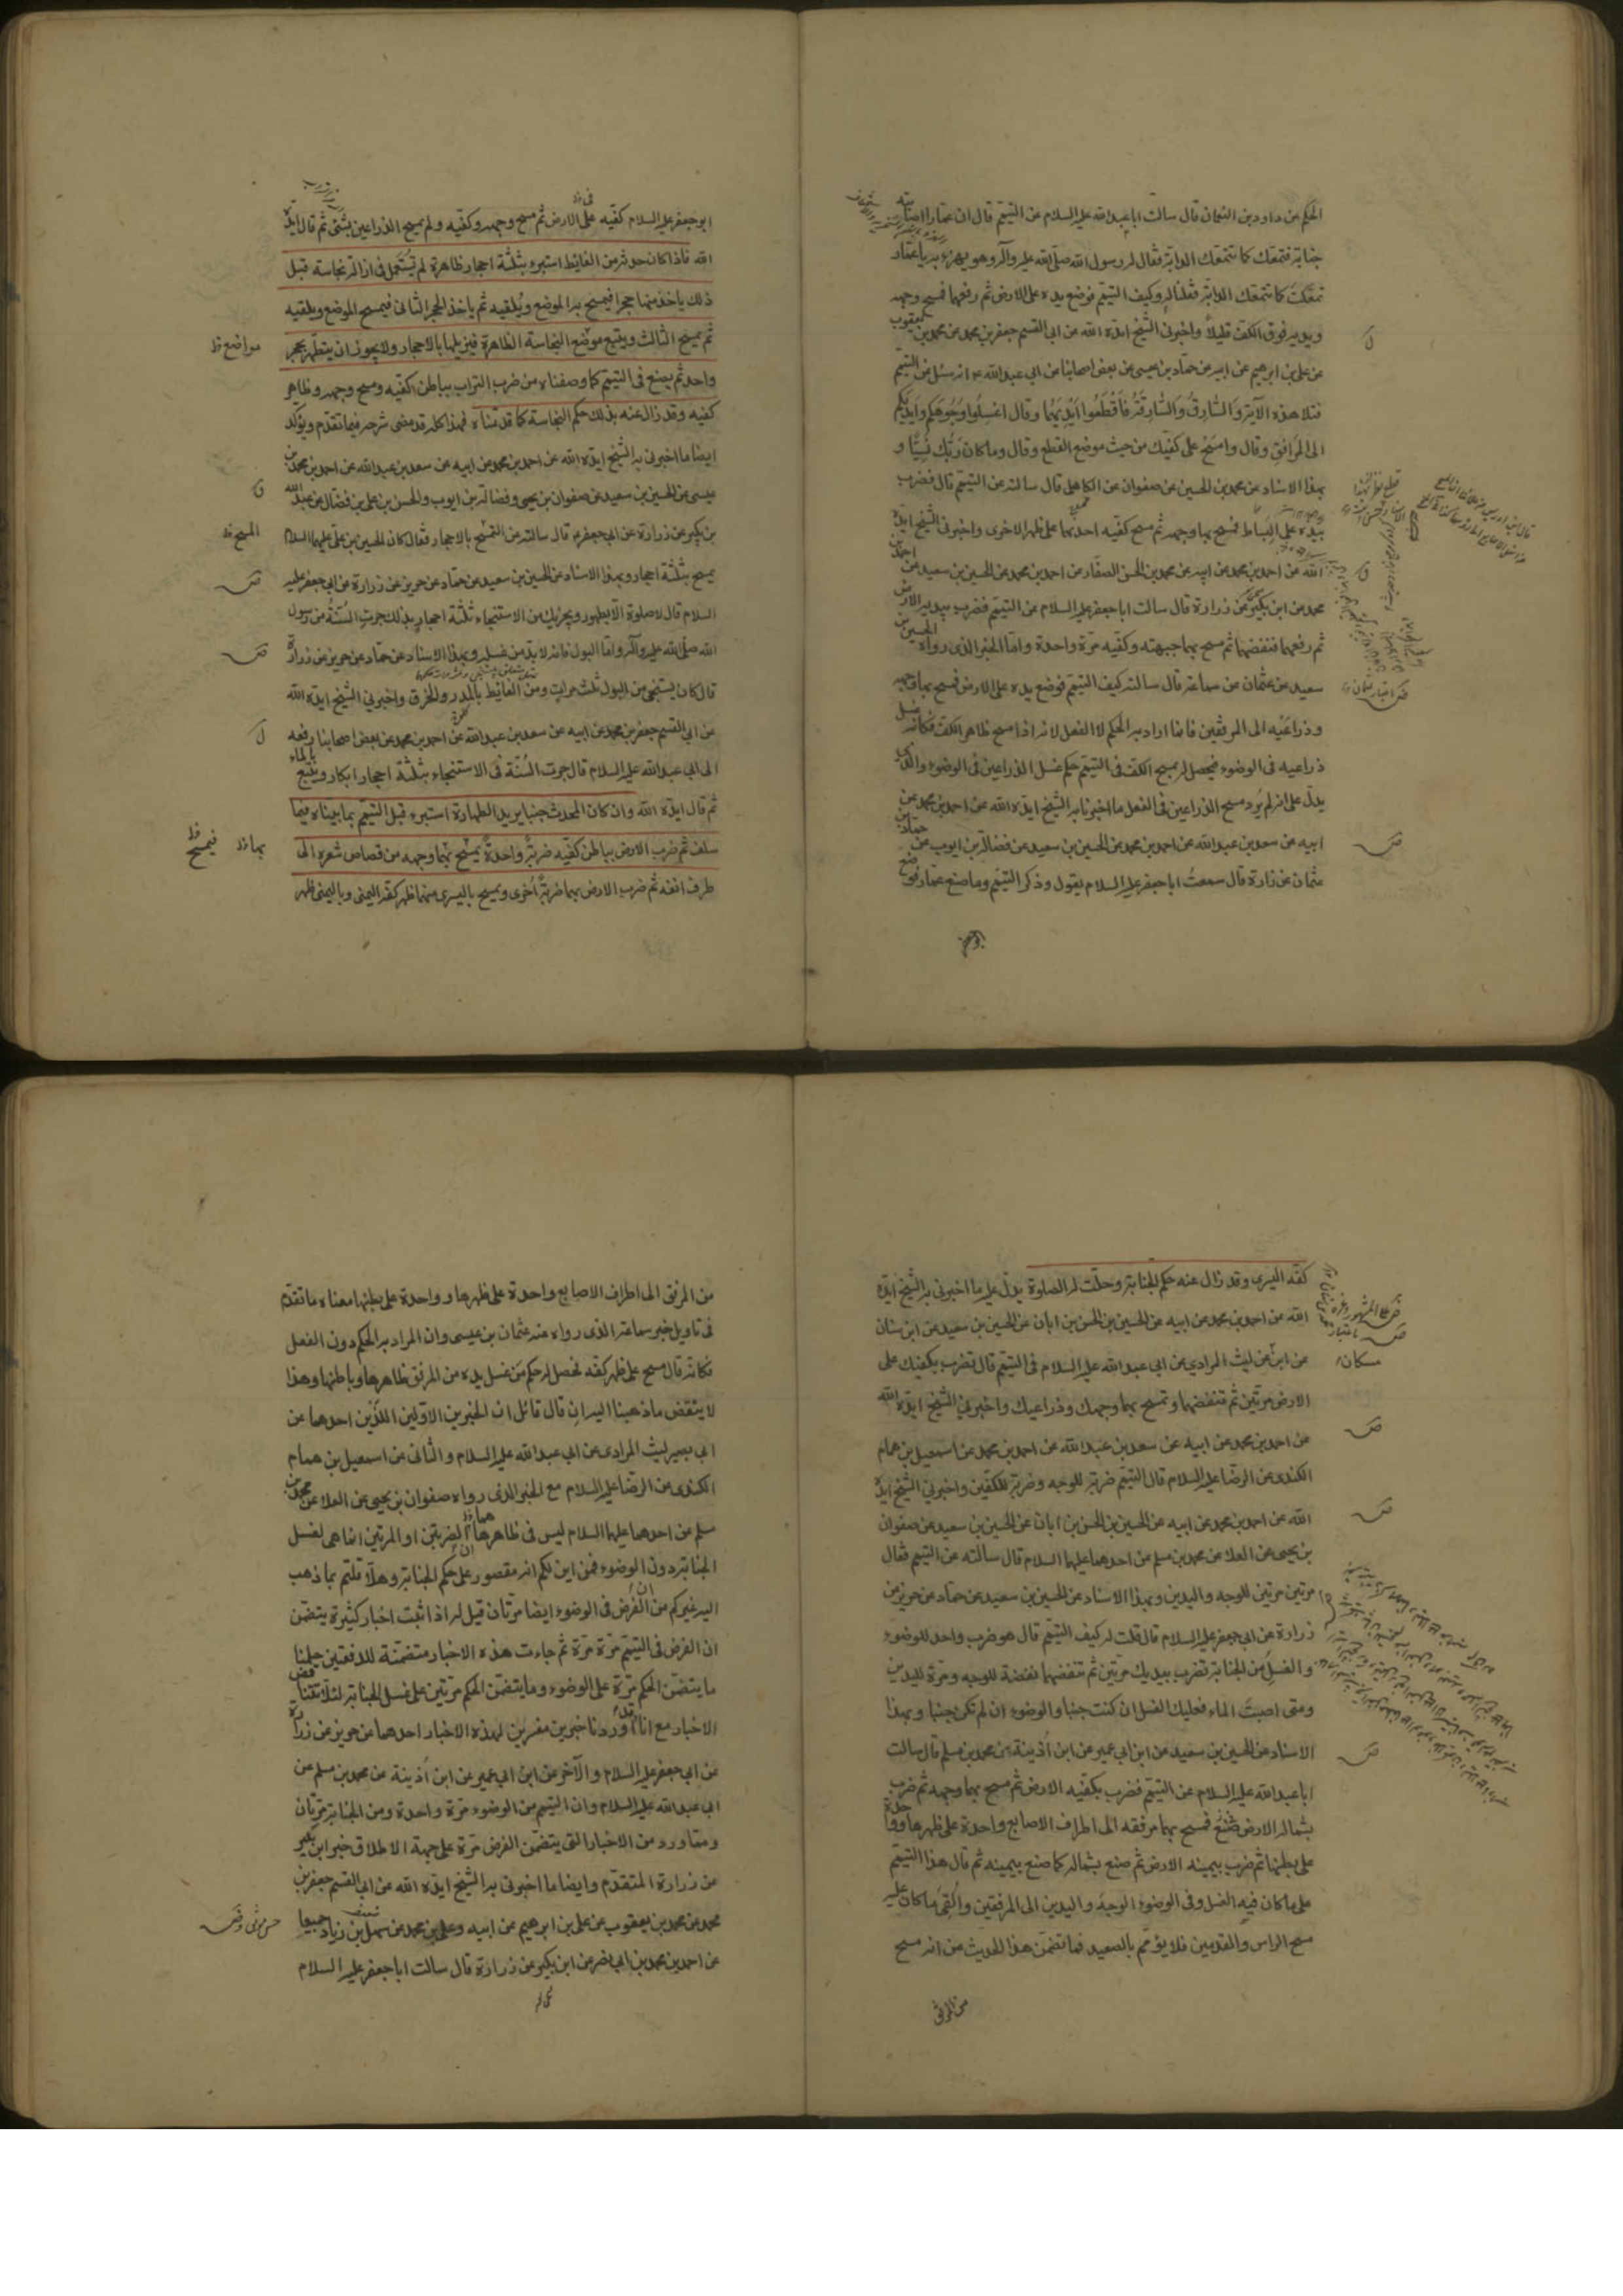 الحكم عن داود بن النعمان قال سالت ابا عبد الله عليه السلام عن التيمم قال ان عمارا اصابته
جنابة فتمعك كما تتمعك الدابة فقال له رسول الله صلى الله عليه وآله وهو يهزء به يا عمار
تمعكت كما تتمعك الدابة فقلنا له وكيف التيمم فوضع يده على الارض ثم رفعها فمسح وجهه
ويديه فوق الكف قليلا واخبرني الشيخ ايده الله عن ابي القسم جعفر بن محمد عن محمد بن يعقوب
عن علي بن ابرهيم عن ابيه عن حماد بن عيسى عن بعض اصحابنا عن ابي عبد الله ع انه سئل عن التيمم
فتلا هذه الآية والسارق والسارقة فاقطعوا ايديهما وقال اغسلوا وجوهكم وايديكم
الى المرافق وقال وامسح على كفيك من حيث موضع القطع وقال وما كان ربك نسيا و
بهذا الاسناد عن محمد بن الحسين عن صفوان عن الكاهلي قال سالته عن التيمم قال فضرب
بيده على البساط فمسح بها وجهه ثم مسح كفيه احديهما على ظهر الاخرى واخبرني الشيخ ايده
الله عن احمد بن محمد عن ابيه عن محمد بن الحسن الصفار عن احمد بن محمد عن الحسين بن سعيد عن احمد بن
محمد عن ابن بكير عن زرارة قال سالت ابا جعفر عليه السلام عن التيمم فضرب بيديه الارض
ثم رفعها فنفضها ثم مسح بها جبهته وكفيه مرة واحدة واما الخبر الذي رواه الحسين بن
سعيد عن عثمان عن سماعة قال سالته كيف التيمم فوضع يده على الارض فمسح بها وجهه
وذراعيه الى المرفقين فانما اراد به الحكم لا الفعل لانه اذا مسح ظاهر الكف فكانه غسل
ذراعيه في الوضوء فيحصل له بمسح الكف في التيمم حكم غسل الذراعين في الوضوء والذي
يدل على انه لم يرد مسح الذراعين في الفعل ما اخبرنا به الشيخ ايده الله عن احمد بن محمد عن
ابيه عن سعد بن عبد الله عن احمد بن محمد عن الحسين بن سعيد عن فضالة بن ايوب عن حماد بن
عثمان عن زرارة قال سمعت ابا جعفر عليه السلام يقول وذكر التيمم وما صنع عمار فوضع
ابو جعفر عليه السلام كفيه على الارض ثم مسح وجهه وكفيه ولم يمسح الذراعين بشئ ثم قال ايده
الله فاذا كان حدثه من الغائط استبرء بثلثة احجار طاهرة لم تستعمل في ازالة نجاسة قبل
ذلك ياخذ منها حجرا فيمسح به الموضع ويلقيه ثم ياخذ الحجر الثاني فيمسح الموضع ويلقيه
ثم يمسح الثالث ويتبع موضع النجاسة الظاهرة فيزيلها بالاحجار ولا يجوز ان يتطهر بحجر
مواضع خ
واحد ثم يصنع في التيمم كما وصفناه من ضرب التراب بباطن كفيه ومسح وجهه وظاهر
كفيه وقد زال عنه بذلك حكم النجاسة كما قدمناه فهذا كله قد مضى شرحه فيما تقدم ويؤكد
ايضا ما اخبرني به الشيخ ايده الله عن احمد بن محمد عن ابيه عن سعد بن عبد الله عن احمد بن محمد بن
عيسى عن الحسين بن سعيد عن صفوان بن يحيى وفضالة بن ايوب والحسن بن علي بن فضال عن عبد الله
بن بكير عن زرارة عن ابي جعفر ع قال سالته عن التمسح بالاحجار فقال كان الحسين بن علي عليهما السلام
المسح خ
يمسح بثلثة احجار وبهذا الاسناد عن الحسين بن سعيد عن حماد عن حريز عن زرارة عن ابي جعفر عليه
السلام قال لا صلوة الا بطهور ويجزيك من الاستنجاء ثلثة احجار بذلك جرت السنة من رسول
الله صلى الله عليه وآله واما البول فانه لابد من غسله وبهذا الاسناد عن حماد عن حريز عن زرارة
قال كان يستنجي من البول ثلث مرات ومن الغائط بالمدر والخرق واخبرني الشيخ ايده الله
عن ابي القسم جعفر بن محمد عن ابيه عن سعد بن عبد الله عن احمد بن محمد عن بعض اصحابنا رفعه
الى ابي عبد الله عليه السلام قال جرت السنة في الاستنجاء بثلثة احجار ابكار ويتبع بالماء
ثم قال ايده الله وان كان المحدث جنبا يريد الطهارة استبرء قبل التيمم بما بيناه فيما
سلف ثم ضرب الارض بباطن كفيه ضربة واحدة يمسح بهما وجهه من قصاص شعره الى
بها خ فيمسح خ
طرف انفه ثم ضرب الارض بهما ضربة اخرى ويمسح باليسرى منهما ظهر كفه اليمنى وباليمنى ظهر
كفه اليسرى وقد زال عنه حكم الجنابة وحلت له الصلوة يدل عليه ما اخبرني به الشيخ ايده
الله عن احمد بن محمد عن ابيه عن الحسين بن الحسن بن ابان عن الحسين بن سعيد عن ابن سنان
عن ابن عن ليث المرادي عن ابي عبد الله عليه السلام في التيمم قال تضرب بكفيك على
مسكان
الارض مرتين ثم تنفضهما وتمسح بهما وجهك وذراعيك واخبرني الشيخ ايده الله
عن احمد بن محمد عن ابيه عن سعد بن عبد الله عن احمد بن محمد عن اسمعيل بن همام
الكندي عن الرضا عليه السلام قال التيمم ضربة للوجه وضربة للكفين واخبرني الشيخ ايده
الله عن احمد بن محمد عن ابيه عن الحسين بن الحسن بن ابان عن الحسين بن سعيد عن صفوان
بن يحيى عن العلا عن محمد بن مسلم عن احدهما عليهما السلام قال سالته عن التيمم فقال
مرتين مرتين للوجه واليدين وبهذا الاسناد عن الحسين بن سعيد عن حماد عن حريز عن
زرارة عن ابي جعفر عليه السلام قال قلت له كيف التيمم قال هو ضرب واحد للوضوء
والغسل من الجنابة تضرب بيديك مرتين ثم تنفضهما نفضة للوجه ومرة لليدين
ومتى اصبت الماء فعليك الغسل ان كنت جنبا والوضوء ان لم تكن جنبا وبهذا
الاسناد عن الحسين بن سعيد عن ابن ابي عمير عن ابن اذينة عن محمد بن مسلم قال سالت
ابا عبد الله عليه السلام عن التيمم فضرب بكفيه الارض ثم مسح بهما وجهه ثم ضرب
بشماله الارض فمسح بها مرفقه الى اطراف الاصابع واحدة على ظهرها وواحدة
على بطنها ثم ضرب بيمينه الارض ثم صنع بشماله كما صنع بيمينه ثم قال هذا التيمم
على ما كان فيه الغسل وفي الوضوء الوجه واليدين الى المرفقين والقى ما كان عليه
مسح الراس والقدمين فلا يؤمم بالصعيد فما تضمن هذا الحديث من انه مسح
من المرفق
من المرفق الى اطراف الاصابع واحدة على ظهرها وواحدة على بطنها معناه ما تقدم
في تاويل خبر سماعة الذي رواه عنه عثمان بن عيسى وان المراد به الحكم دون الفعل
فكانه قال مسح على ظهر كفه فحصل له حكم من غسل يده من المرفق ظاهرها وباطنها وهذا
لا ينقض ما ذهبنا اليه ان قال قائل ان الخبرين الاولين اللذين احدهما عن
ابي بصير ليث المرادي عن ابي عبد الله عليه السلام والثاني عن اسمعيل بن همام
الكندي عن الرضا عليه السلام مع الخبر الذي رواه صفوان بن يحيى عن العلا عن محمد بن
مسلم عن احدهما عليهما السلام ليس في ظاهرها ان الضربتين او المرتين انما هي لغسل
الجنابة دون الوضوء فمن اين لكم انه مقصور على حكم الجنابة وهلا قلتم بما ذهب
اليه غيركم من ان الفرض في الوضوء ايضا مرتان قيل له اذا ثبت اخبار كثيرة يتضمن
ان الفرض في التيمم مرة مرة ثم جاءت هذه الاخبار متضمنة للدفعتين حملنا
ما يتضمن الحكم مرة على الوضوء وما يتضمن الحكم مرتين على غسل الجنابة لئلا تتناقض
الاخبار مع انا قد اوردنا خبرين مفسرين لهذه الاخبار احدهما عن حريز عن زرارة
عن ابي جعفر عليه السلام والآخر عن ابن ابي عمير عن ابن اذينة عن محمد بن مسلم عن
ابي عبد الله عليه السلام وان التيمم من الوضوء مرة واحدة ومن الجنابة مرتان
ومما ورد من الاخبار التي يتضمن الفرض مرة على جهة الاطلاق خبر ابن بكير
عن زرارة المتقدم وايضا ما اخبرني به الشيخ ايده الله عن ابي القسم جعفر بن
محمد عن محمد بن يعقوب عن علي بن ابرهيم عن ابيه وعلي بن محمد عن سهل بن زياد جميعا
عن احمد بن محمد بن ابي نصر عن ابن بكير عن زرارة قال سالت ابا جعفر عليه السلام